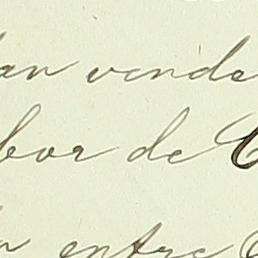 an venda
bor de
entre